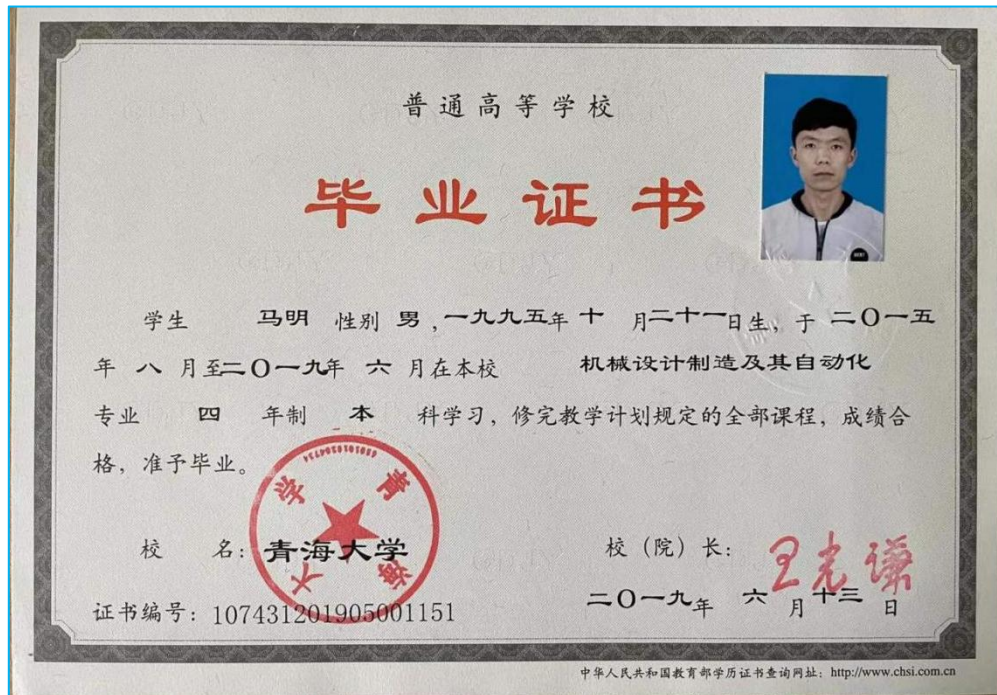 普通高等学校
毕业证书
学生 马明 性别 男，一九九五年 十 月二十一日生，于 二〇一五
年 八 月至二〇一九年 六 月在本校 机械设计制造及其自动化
专业 四 年制 本 科学习，修完教学计划规定的全部课程，成绩合
格，准予毕业。
青海大学
校 名：青海大学 校（院）长：王光谦
证书编号：107431201905001151 二〇一九年 六 月十三日
中华人民共和国教育部学历证书查询网址：http://www.chsi.com.cn